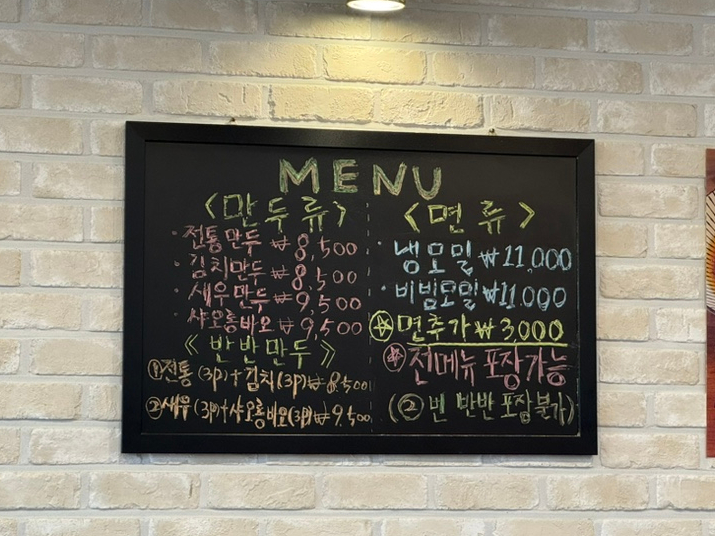 MENU
<만두류>
· 전통만두 ₩8,500
· 김치만두 ₩8,500
· 새우만두 ₩9,500
· 샤오롱바오 ₩9,500
《반반만두》
①전통 (3p)+김치(3p)₩8,500
②새우 (3p)+샤오롱바오(3p)₩9,500
<면류>
· 냉모밀 ₩11,000
· 비빔모밀 ₩11.000
면추가 ₩3,000
전메뉴 포장가능
(②번 반반 포장불가)